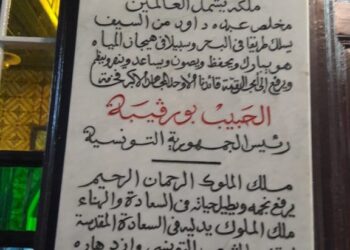 ملكه يشمل العالمين
مخلص عبده داود من السيف
يسلك طريقا في البحر وسبيلا في هيجان المياه
هو يبارك ويحفظ ويصون ويساعد وينصر ويعظم
ويرفع إلى الدرجة قائدنا الأوحد المجاهد الأكبر فخامة
الحبيب بورقيبة
رئيس الجمهورية التونسية
ملك الملوك الرحمان الرحيم
يرفع نجمه ويطيل حياته في السعادة والهناء
ملك الملوك يديه في السعادة المقدسة
الشعب التونسي وازدهاره